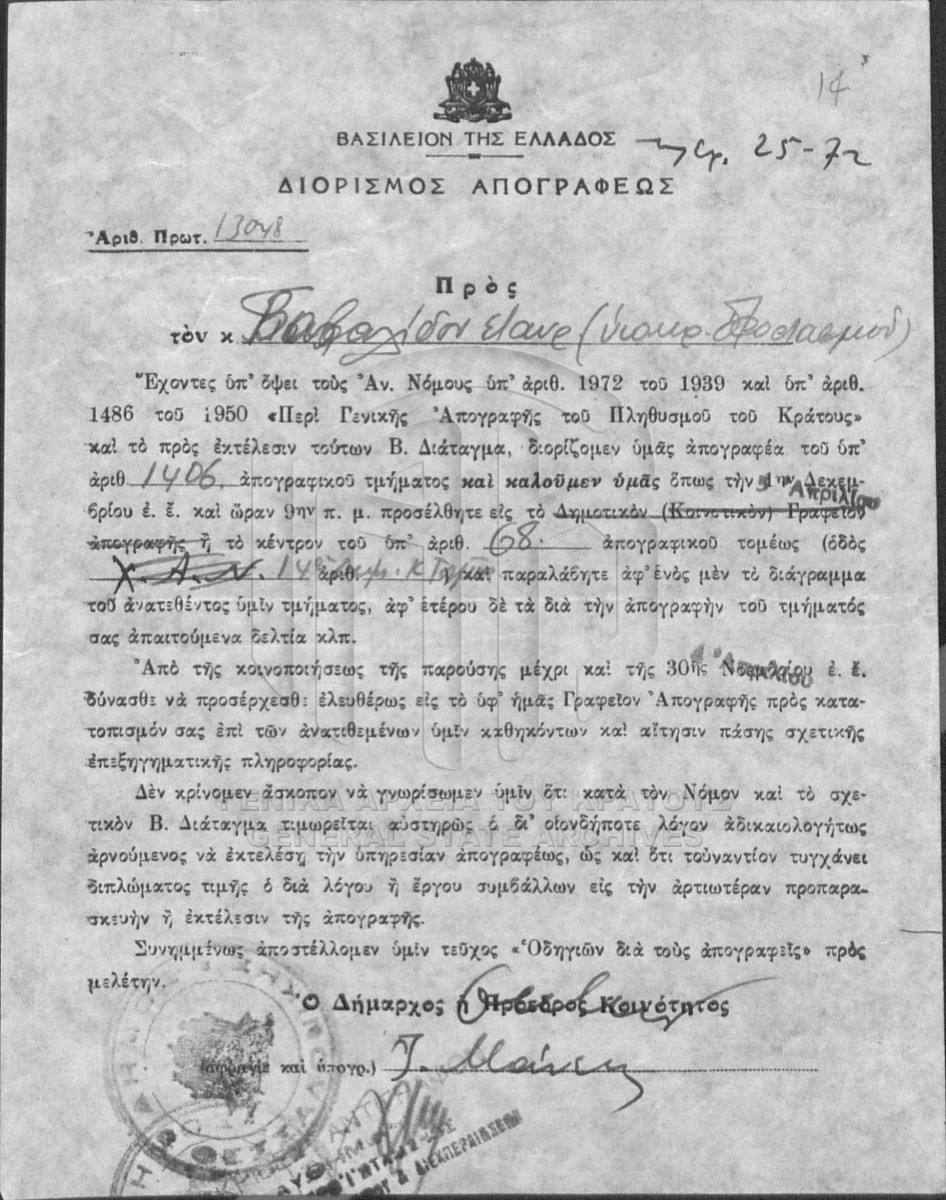 14
ΒΑΣΙΛΕΙΟΝ ΤΗΣ ΕΛΛΑΔΟΣ
25-72
ΔΙΟΡΙΣΜΟΣ ΑΠΟΓΡΑΦΕΩΣ
Ἀριθ. Πρωτ. 13048
Πρὸς
τὸν κ
Ἔχοντες ὑπ' ὄψει τοὺς Ἀν. Νόμους ὑπ' ἀριθ. 1972 τοῦ 1939 καὶ ὑπ' ἀριθ.
1486 τοῦ 1950 «Περὶ Γενικῆς Ἀπογραφῆς τοῦ Πληθυσμοῦ τοῦ Κράτους»
καὶ τὸ πρὸς ἐκτέλεσιν τούτων Β. Διάταγμα, διορίζομεν ὑμᾶς ἀπογραφέα τοῦ ὑπ'
ἀριθ 1406. ἀπογραφικοῦ τμήματος καὶ καλοῦμεν ὑμᾶς ὅπως τὴν 1ην Δεκεμ-
Ἀπριλίου
βρίου ἐ. ἔ. καὶ ὥραν 9ην π. μ. προσέλθητε εἰς τὸ Δημοτικὸν (Κοινοτικὸν) Γραφεῖον
ἀπογραφῆς ἢ τὸ κέντρον τοῦ ὑπ' ἀριθ. 68. ἀπογραφικοῦ τομέως (ὁδὸς
Χ. Α. Ν. ἀριθ ) καὶ παραλάβητε ἀφ' ἑνὸς μὲν τὸ διάγραμμα
τοῦ ἀνατεθέντος ὑμῖν τμήματος, ἀφ' ἑτέρου δὲ τὰ διὰ τὴν ἀπογραφὴν τοῦ τμήματός
σας ἀπαιτούμενα δελτία κλπ.
Ἀπὸ τῆς κοινοποιήσεως τῆς παρούσης μέχρι καὶ τῆς 30ῆς Νοεμβρίου ἐ. ἔ.
Ἀπριλίου
δύνασθε νὰ προσέρχεσθε ἐλευθέρως εἰς τὸ ὑφ' ἡμᾶς Γραφεῖον Ἀπογραφῆς πρὸς κατα-
τοπισμόν σας ἐπὶ τῶν ἀνατιθεμένων ὑμῖν καθηκόντων καὶ αἴτησιν πάσης σχετικῆς
ἐπεξηγηματικῆς πληροφορίας.
Δὲν κρίνομεν ἄσκοπον νὰ γνωρίσωμεν ὑμῖν ὅτι κατὰ τὸν Νόμον καὶ τὸ σχε-
ΓΕΝΙΚΑ ΑΡΧΕΙΑ ΤΟΥ ΚΡΑΤΟΥΣ
τικὸν Β. Διάταγμα τιμωρεῖται αὐστηρῶς ὁ δι' οἱονδήποτε λόγον ἀδικαιολογήτως
GENERAL STATE ARCHIVES
ἀρνούμενος νὰ ἐκτελέσῃ τὴν ὑπηρεσίαν ἀπογραφέως, ὡς καὶ ὅτι τοὐναντίον τυγχάνει
διπλώματος τιμῆς ὁ διὰ λόγου ἢ ἔργου συμβάλλων εἰς τὴν ἀρτιωτέραν προπαρα-
σκευὴν ἢ ἐκτέλεσιν τῆς ἀπογραφῆς.
Συνημμένως ἀποστέλλομεν ὑμῖν τεῦχος «Ὁδηγιῶν διὰ τοὺς ἀπογραφεῖς» πρὸς
μελέτην.
Ὁ Δήμαρχος ἢ Πρόεδρος Κοινότητος
(σφραγὶς καὶ ὑπογρ.)
& ΔΙΕΚΠΕΡΑΙΩΣΕΩΝ